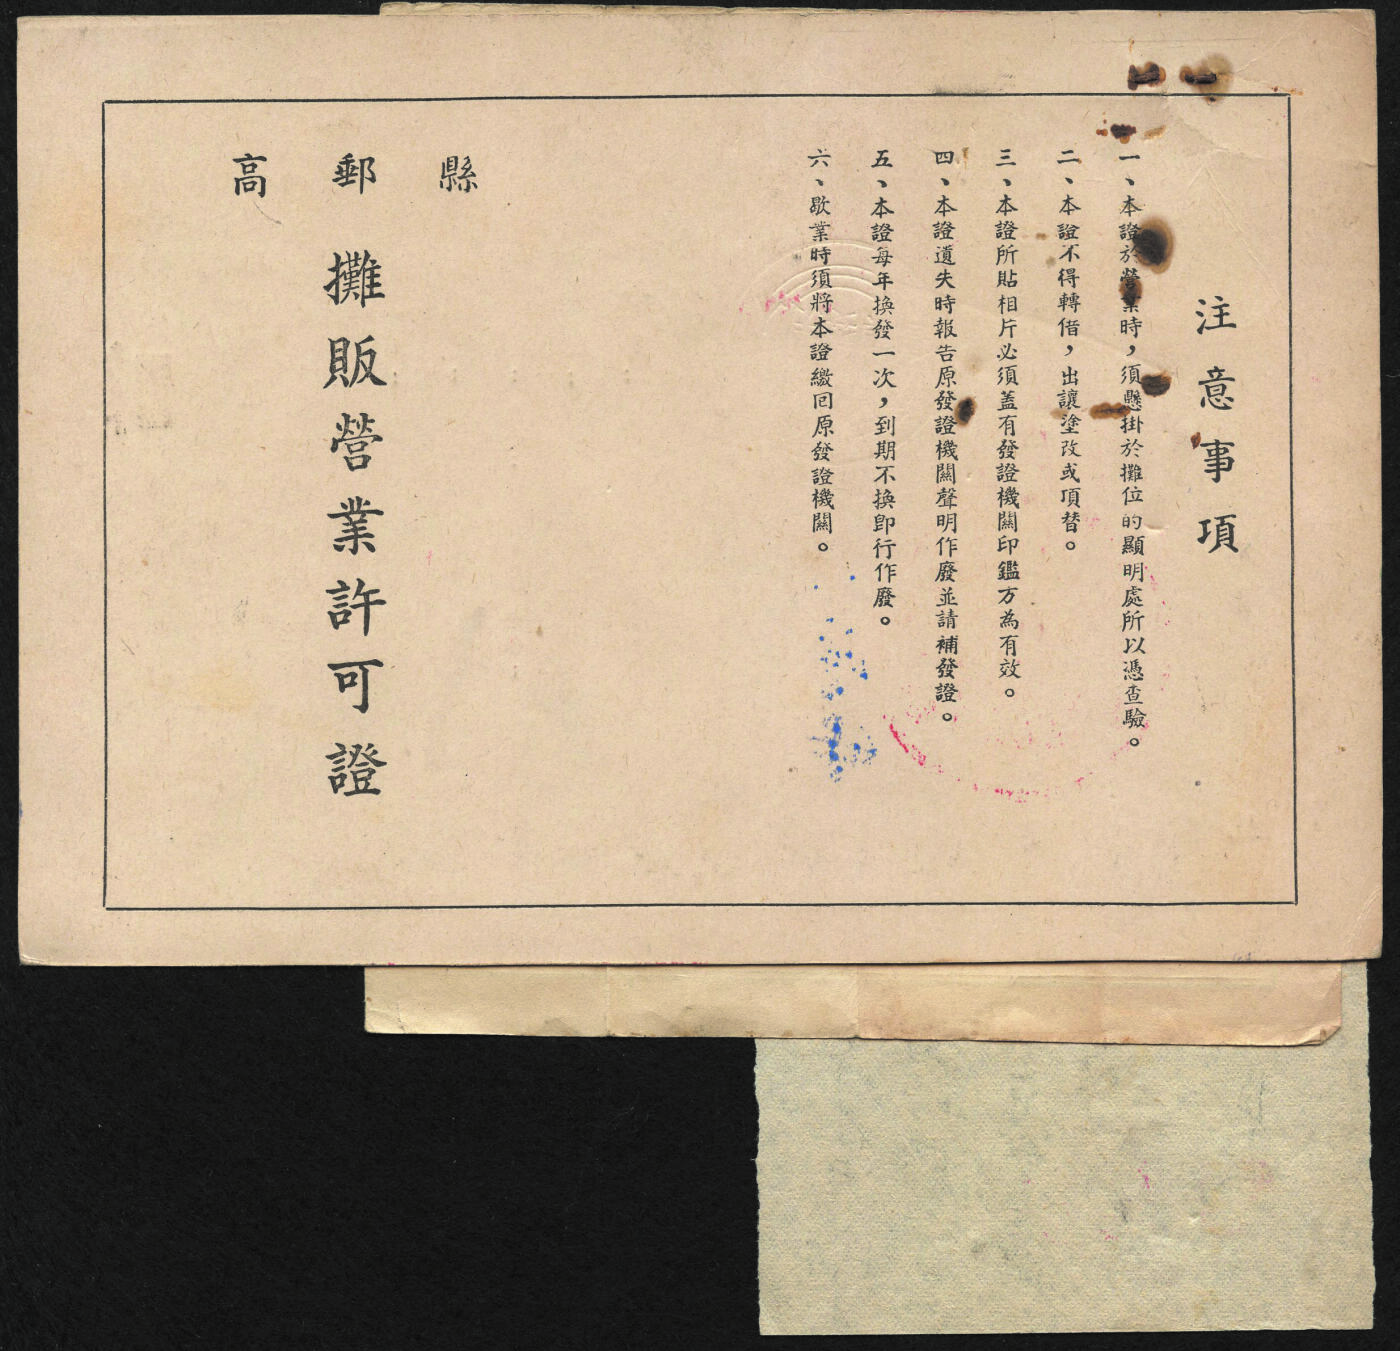 注意事項
一、本證於營業時，須懸掛於攤位的顯明處所以憑查驗。
二、本證不得轉借，出讓塗改或頂替。
三、本證所貼相片必須盖有發證機關印鑑方為有效。
四、本證遺失時報告原發證機關聲明作廢並請補發證。
五、本證每年換發一次，到期不換卽行作廢。
六、歇業時須將本證繳回原發證機關。
高郵縣
攤販營業許可證